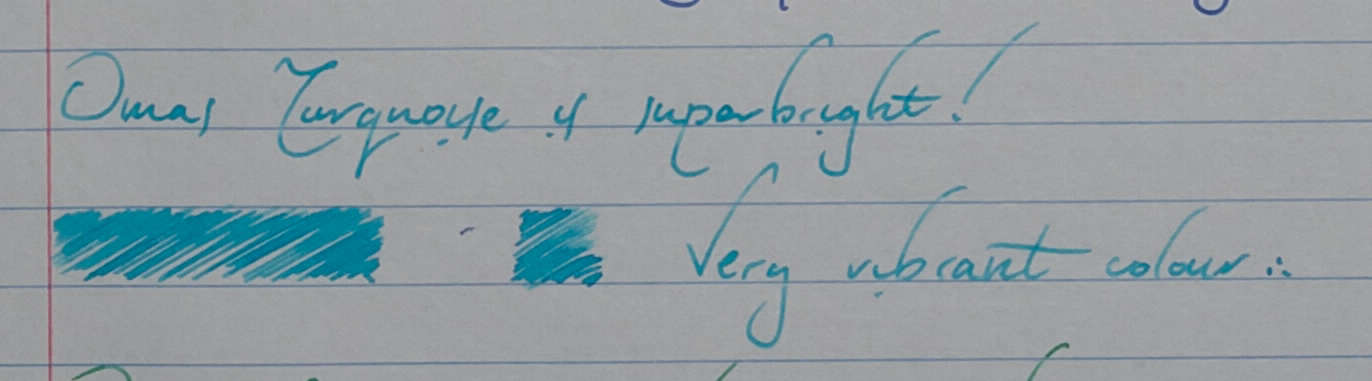 Omas Turquoise is superbright!
Very vibrant colour :.